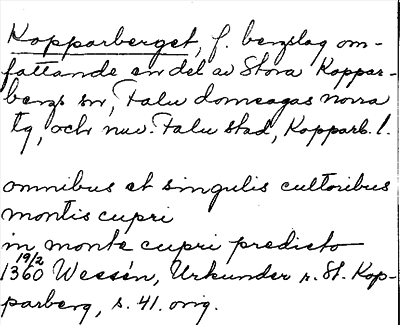 Kopparberget, f. bergslag om-
fattande en del av Stora Koppar-
bergs sn, Falu domsagas norra
tg, och nuv. Falu stad, Kopparb. l.
omnibus et singulis cultoribus
montis cupri
in monte cupri predicto
19/2
1360 Wessén, Urkunder r. St. Kop-
parberg, s. 41. orig.